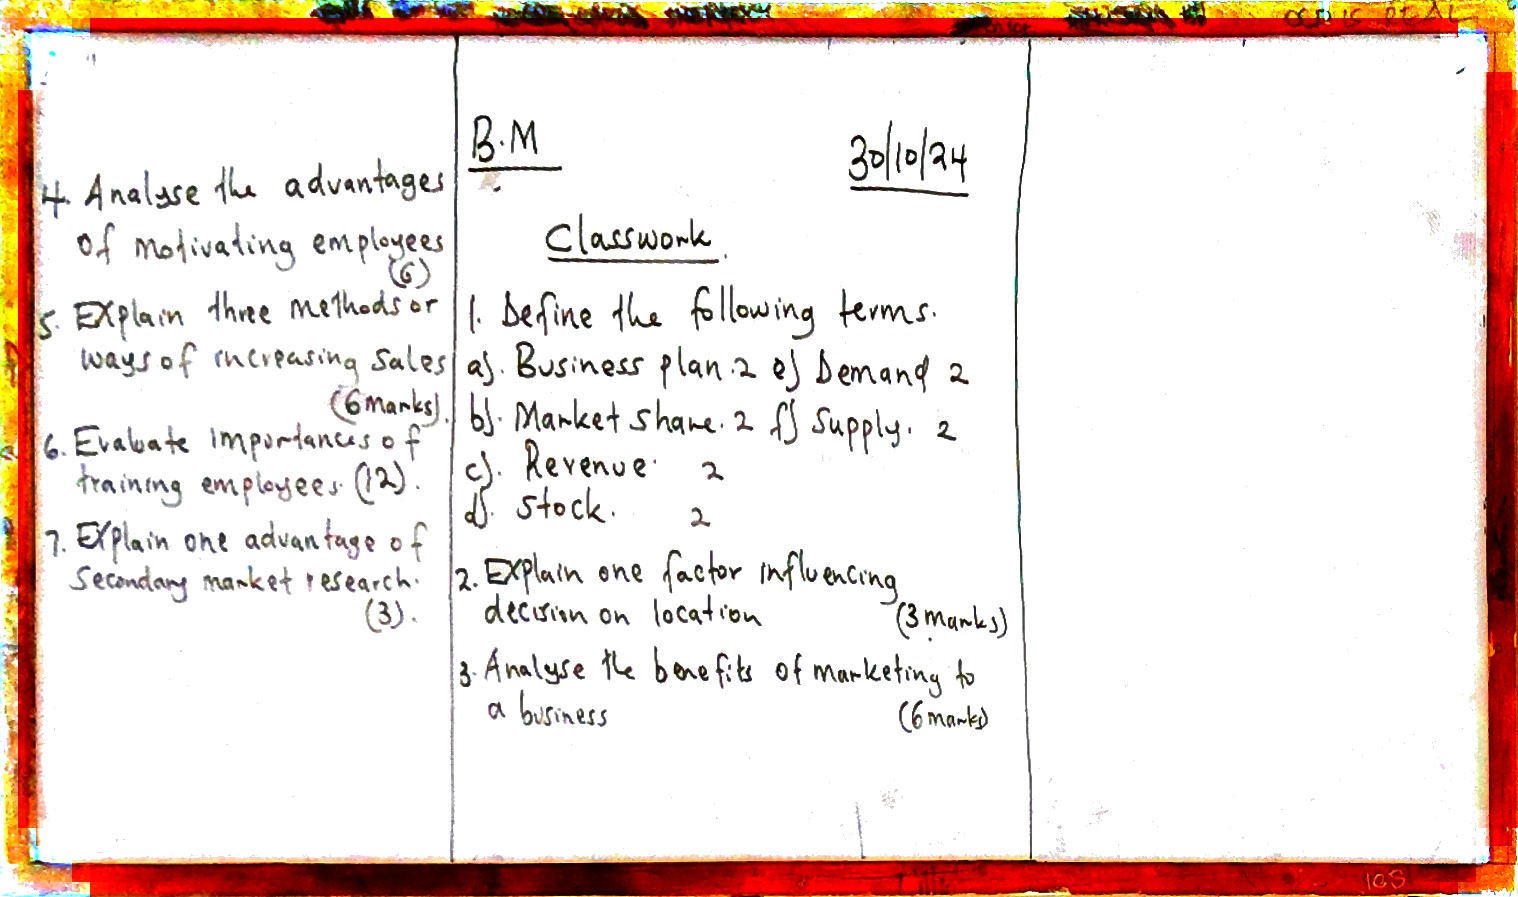 B.M
30/10/24
Classwork.
1. Define the following terms.
a). Business plan. 2 e) Demand 2
b). Market share. 2 f) Supply. 2
c). Revenue. 2
d). Stock. 2
2. Explain one factor influencing
decision on location (3 marks)
3. Analyse the benefits of marketing to
a business (6 marks)
4. Analyse the advantages
of motivating employees
(6)
5. Explain three methods or
ways of increasing sales
(6 marks).
6. Evaluate importances of
training employees. (12).
7. Explain one advantage of
Secondary market research.
(3).